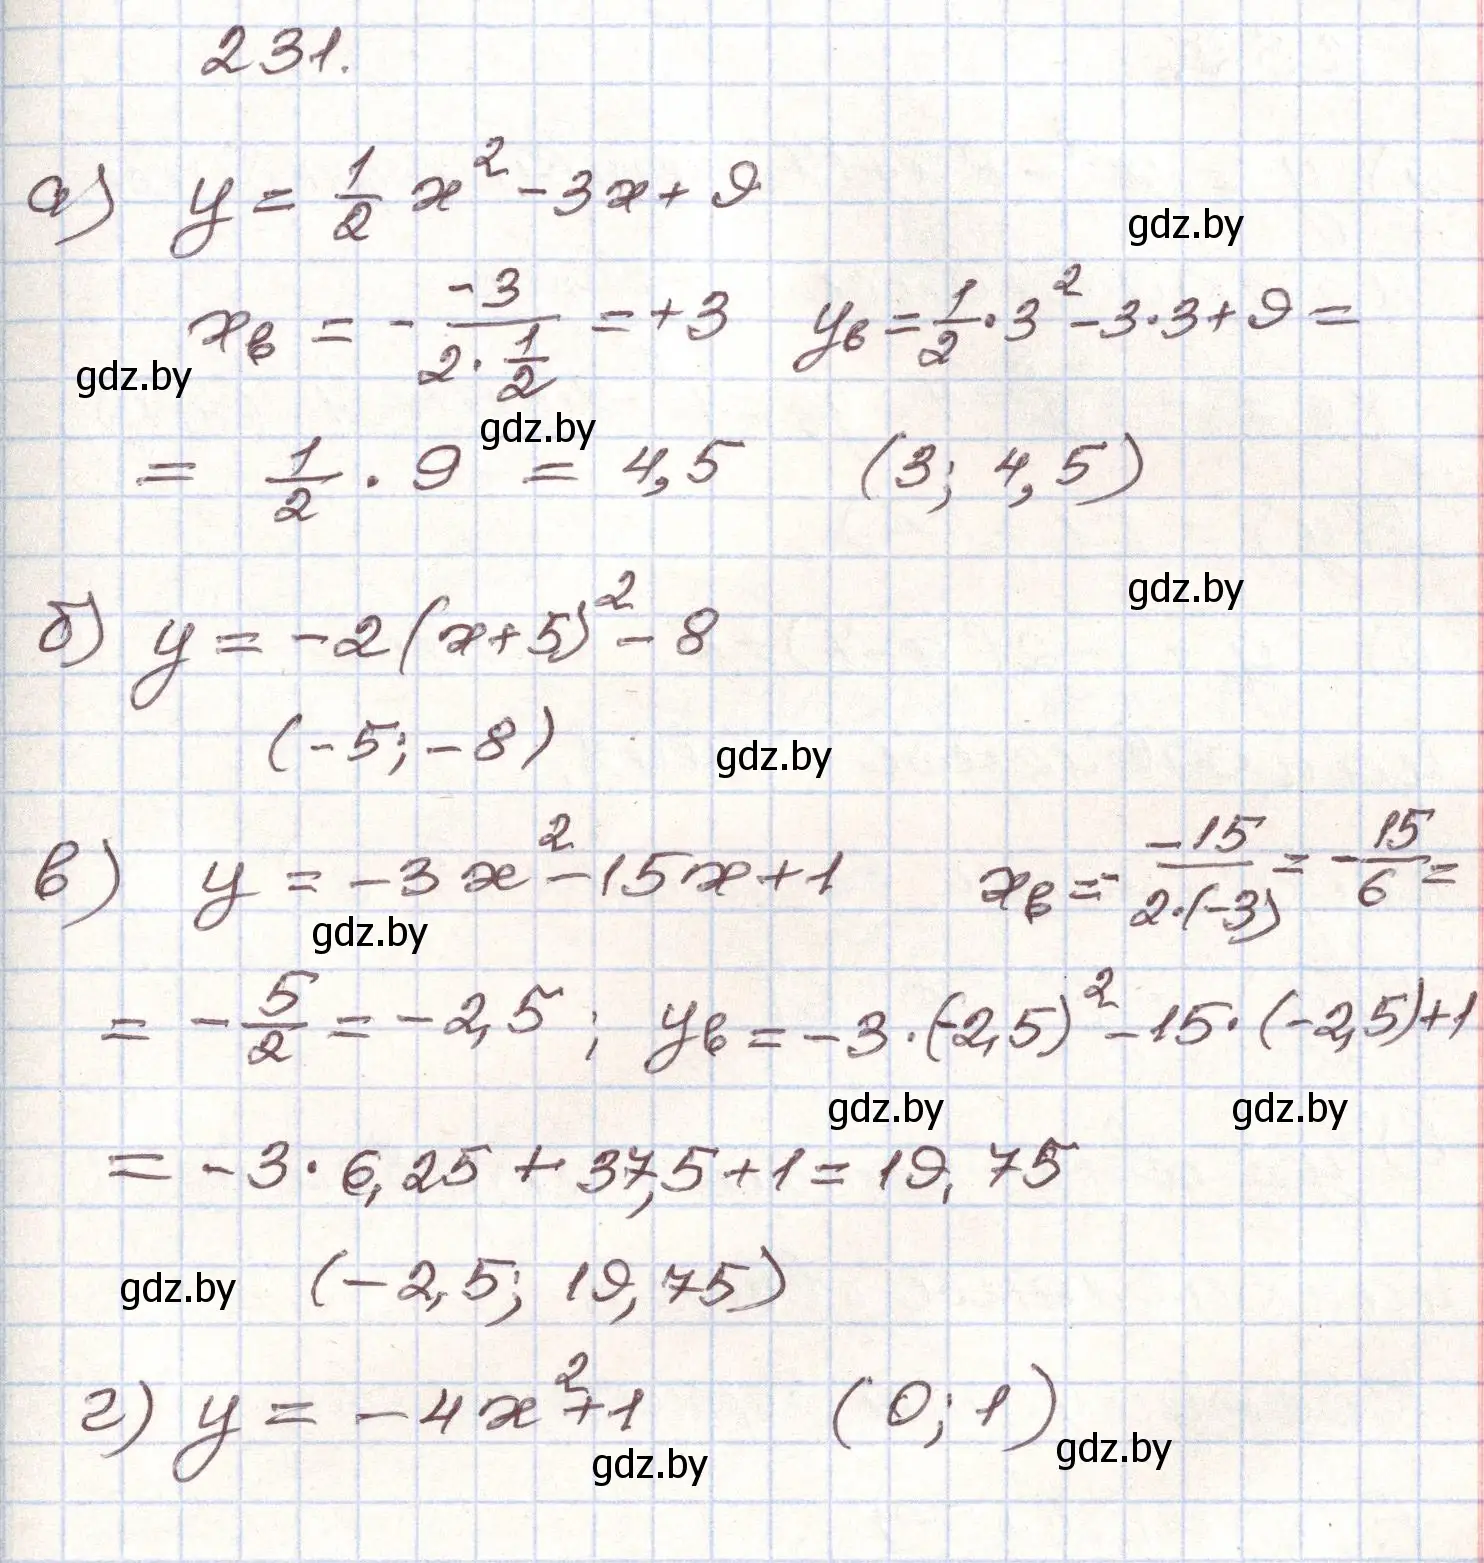 231.
а) y = 1/2 x² - 3x + 9
gdz.by
xв = - -3/(2·1/2) = +3   yв = 1/2 · 3² - 3·3 + 9 =
gdz.by
gdz.by
= 1/2 · 9 = 4,5   (3; 4,5)
gdz.by
б) y = -2(x+5)² - 8
(-5; -8)
gdz.by
в) y = -3x² - 15x + 1   xв = - -15/(2·(-3)) = - 15/6 =
gdz.by
= - 5/2 = -2,5; yв = -3·(-2,5)² - 15·(-2,5) + 1
gdz.by gdz.by
= -3·6,25 + 37,5 + 1 = 19,75
gdz.by (-2,5; 19,75)
г) y = -4x² + 1   (0; 1)
gdz.by
gdz.by